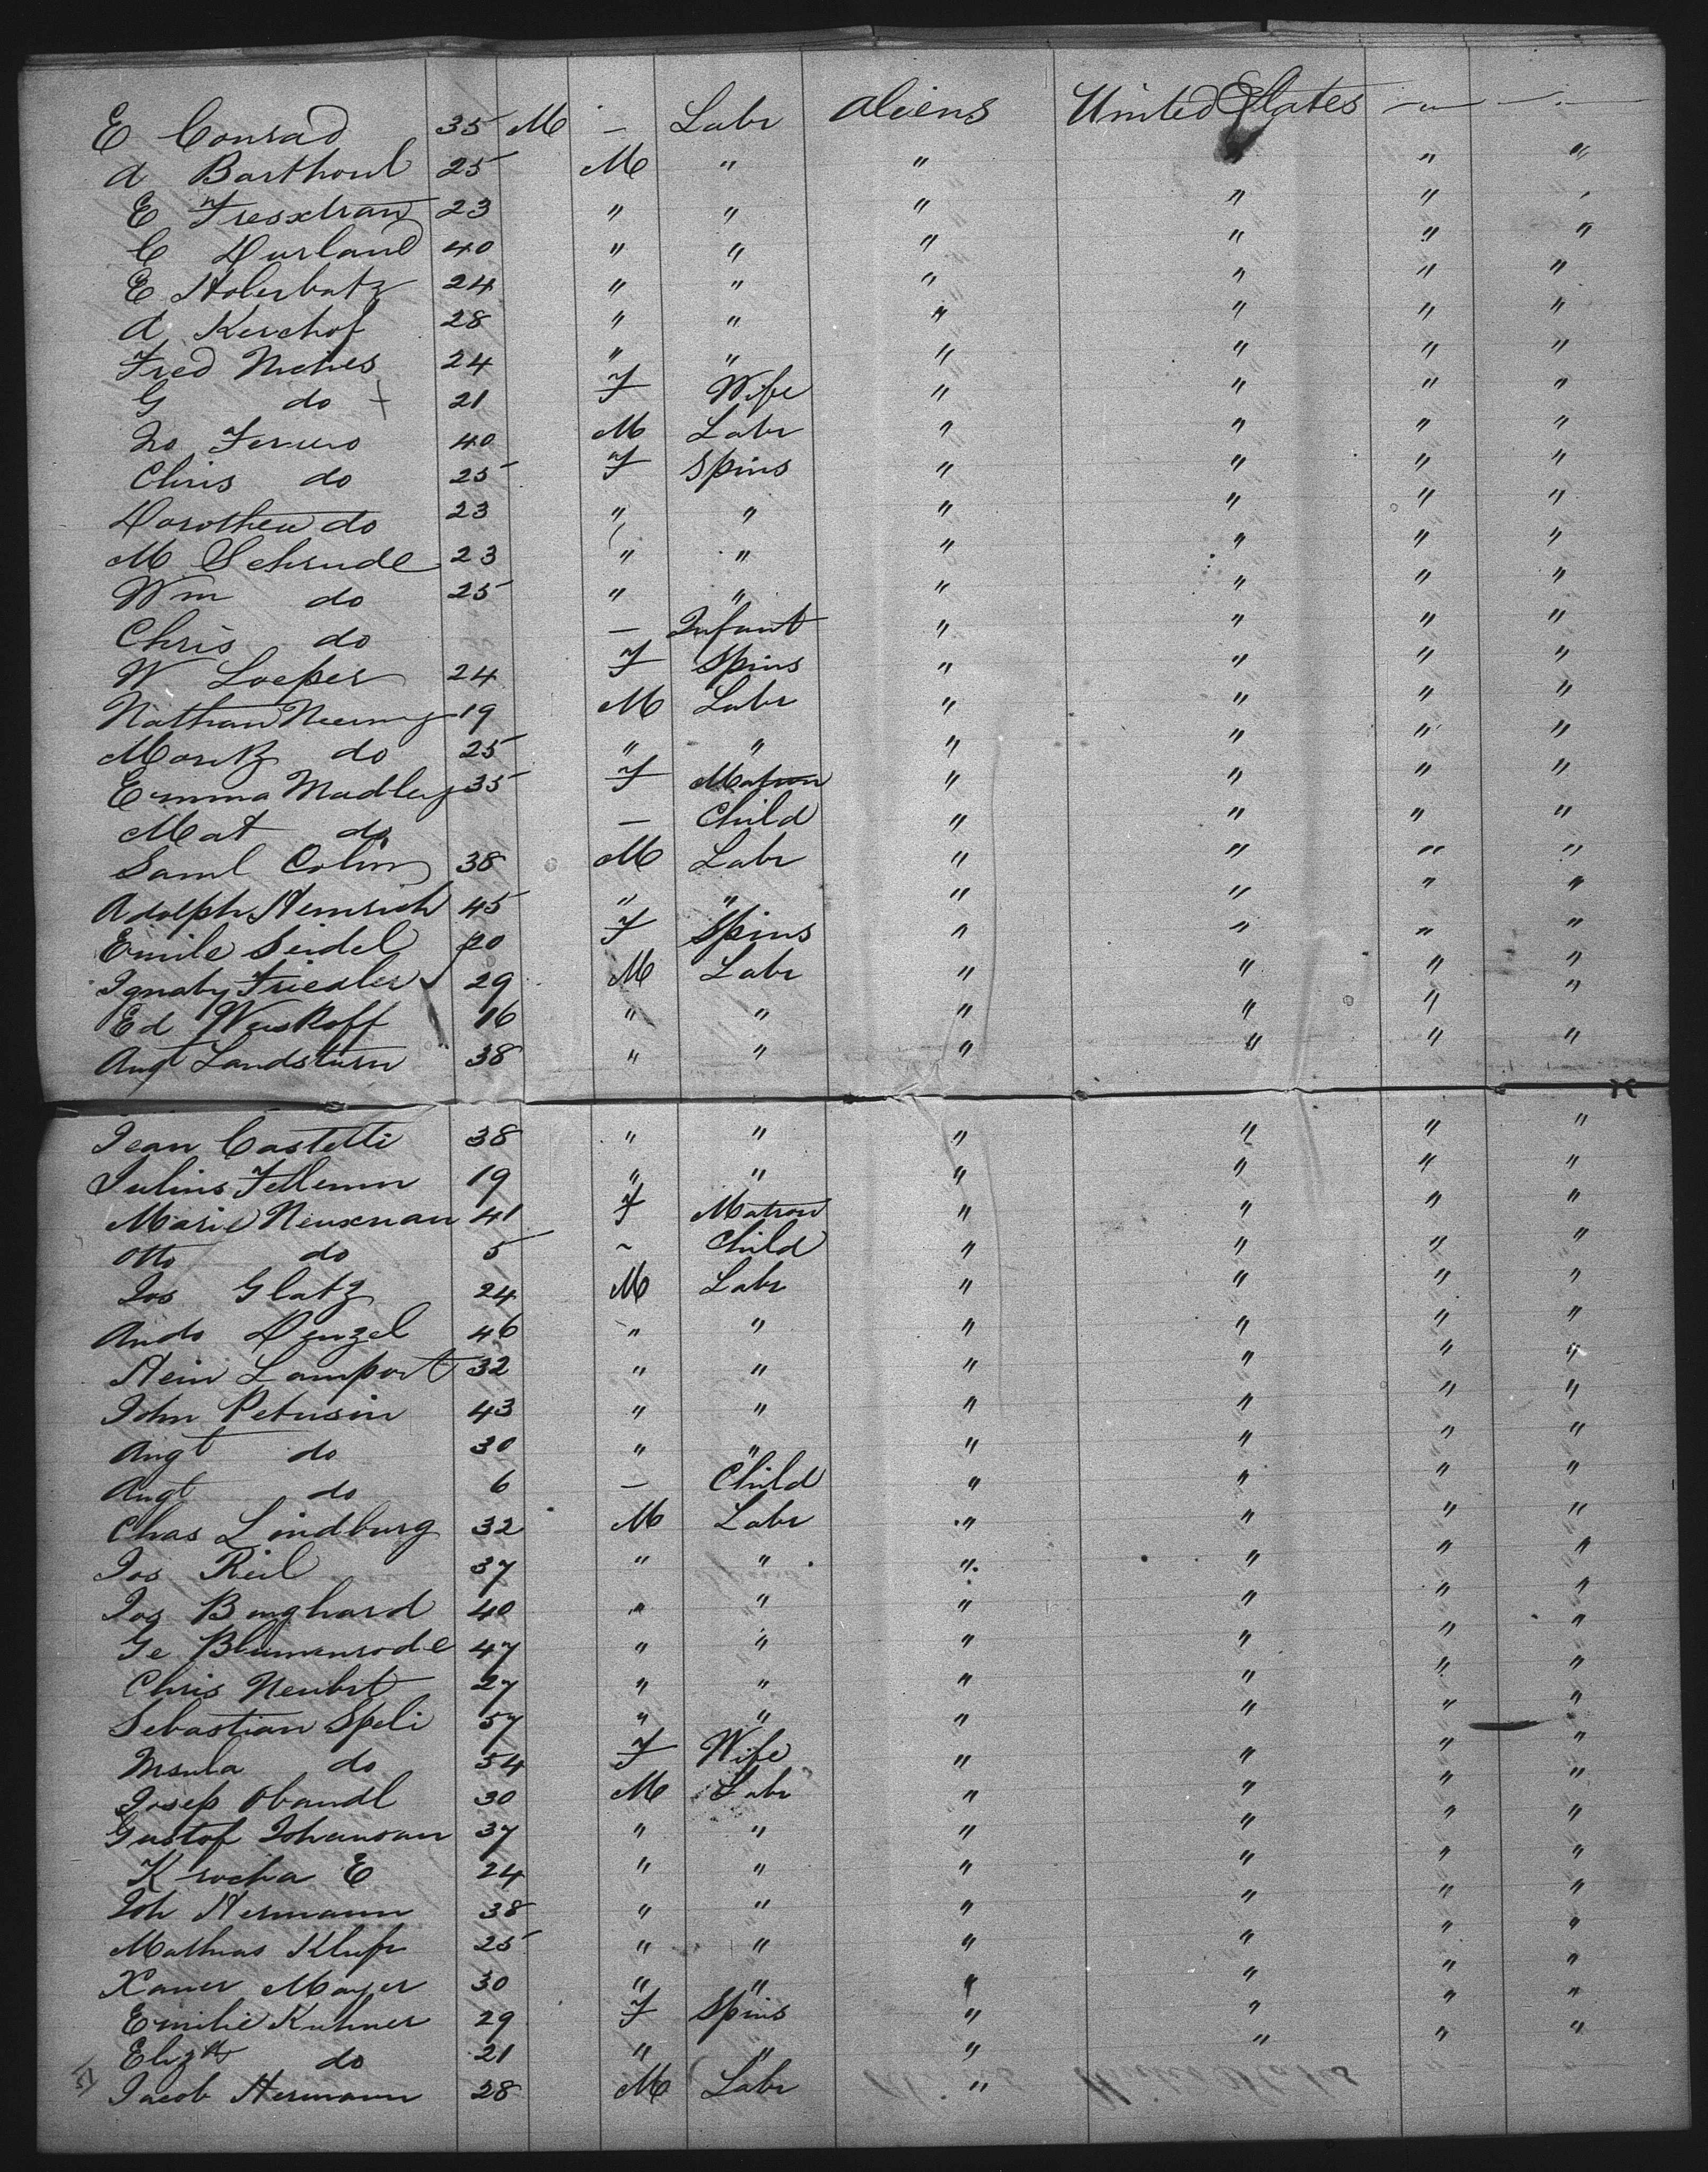 E Conrad 35 M — Labr Aliens United States — " — . —
A Barthoul 25 M " " " " "
E 23 " " " " " "
C Durland 40 " " " " " "
E Holerbatz 24 " " " " " "
A Kerchof 28 " " " " " "
Fred Niches 24 " " " " " "
G do + 21 F Wife " " " "
Jo Feruro 40 M Labr " " " "
Chris do 25 F Spins " " " "
Dorothea do 23 " " " " " "
M Schrude 23 " " " " " "
Wm do 25 " " " " " "
Chris do — Infant " " " "
W Loeper 24 F Spins " " " "
Nathan 19 M Labr " " " "
Moritz do 25 " " " " " "
Emma Madley 35 F Matron " " " "
Mat do — Child " " " "
Saml Cohn 38 M Labr " " " "
Adolph Heinrich 45 " " " " " "
Emile Seidel 20 F Spins " " " "
Friedler ✓ 29 M Labr " " " "
Ed Weiskoff 16 " " " " " "
Augt Landsturn 38 " " " " " "
Jean Castelli 38 " " " " " "
Julius 19 " " " " " "
Marie Neuxnan 41 F Matron " " " "
Otto do 5 ~ Child " " " "
Jos Glatz 24 M Labr " " " "
Ands Denzel 46 " " " " " "
Hein Lamport 32 " " " " " "
John Petersin 43 " " " " " "
Augt do 30 " " " " " "
Augt do 6 — Child " " " "
Chas Lindburg 32 M Labr " " " "
Jos Reil 37 " " " " " "
Jos Burghard 40 " " " " " "
Ge Blumenrode 47 " " " " " "
Chris Neubrt 27 " " " " " "
Sebastian Speli 57 " " " " " "
do 54 F Wife " " " "
Josep Obandl 30 M Labr " " " "
Gustof Johansan 37 " " " " " "
Krocha E 24 " " " " " "
Joh Hermann 38 " " " " " "
Mathias 25 " " " " " "
Xaver Mayer 30 " " " " " "
Emilie Kuhner 29 F Spins " " " "
Elizth do 21 " " " " " "
Jacob Hermann 28 M Labr "